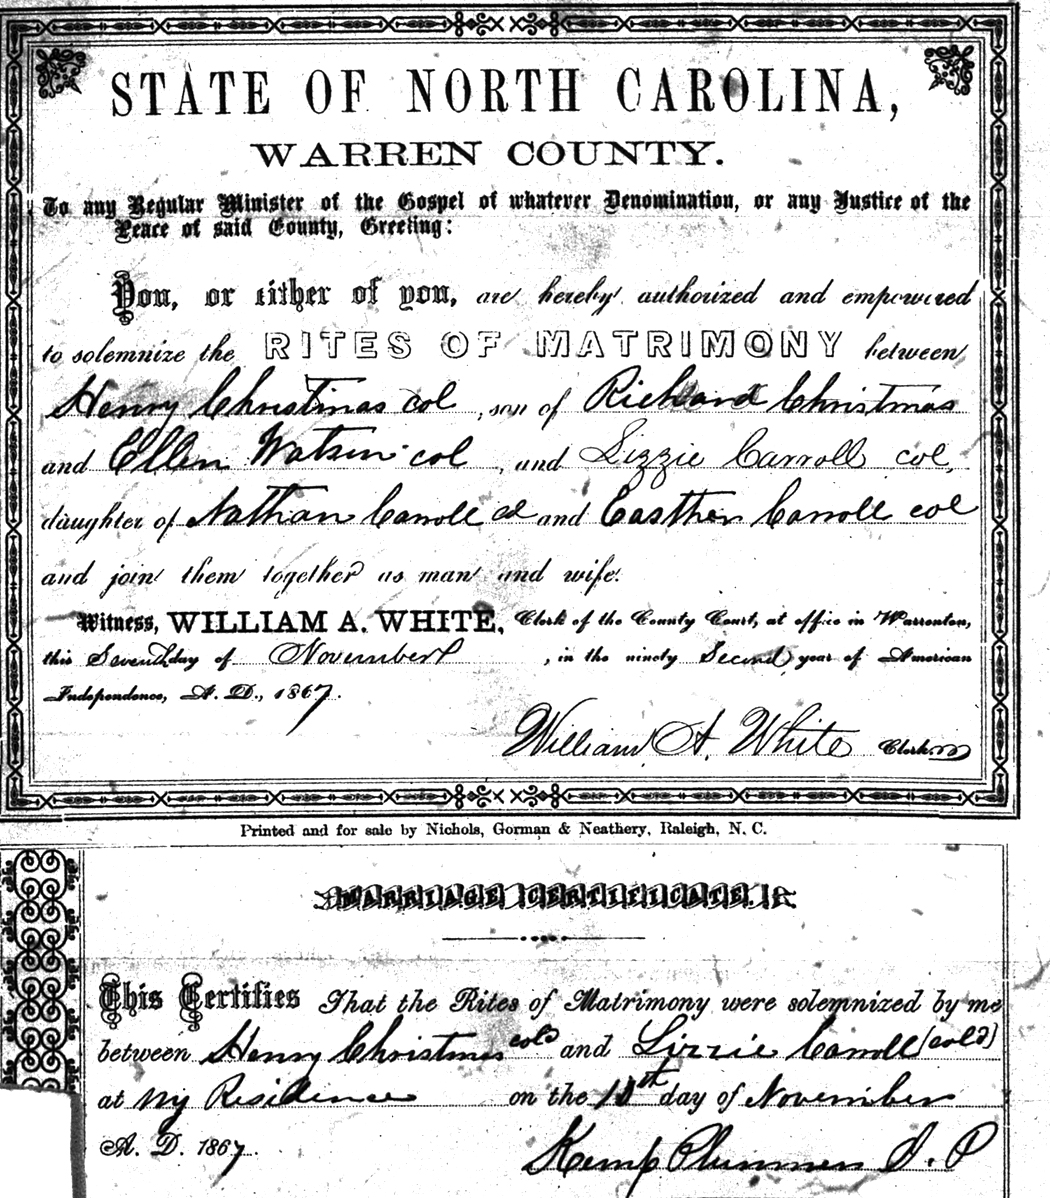 STATE OF NORTH CAROLINA,
WARREN COUNTY.
To any Regular Minister of the Gospel of whatever Denomination, or any Justice of the
Peace of said County, Greeting:
You, or either of you, are hereby authorized and empowered
to solemnize the RITES OF MATRIMONY between
Henry Christmas col , son of Richard Christmas
and Ellen Watson col , and Lizzie Carroll col,
daughter of Nathan Carroll col and Easther Carroll col
and join them together as man and wife.
Witness, WILLIAM A. WHITE, Clerk of the County Court, at office in Warrenton,
this Seventh day of November , in the ninety Second year of American
Independence, A. D., 1867.
William A. White Clerk
Printed and for sale by Nichols, Gorman & Neathery, Raleigh, N. C.
MARRIAGE CERTIFICATE.
This Certifies That the Rites of Matrimony were solemnized by me
between Henry Christmas cold and Lizzie Carroll (cold)
at my Residence on the day of November
A. D. 1867.
Kemp Plummer J. P